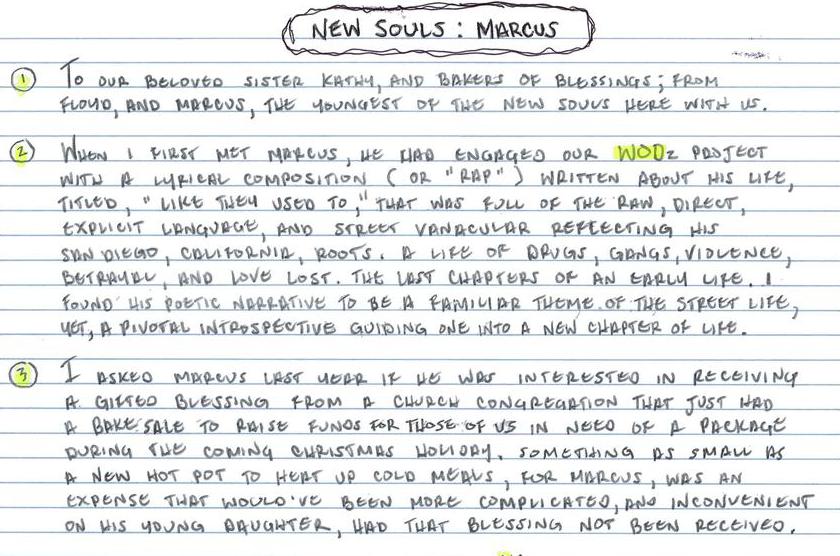 NEW SOULS : MARCUS
1 TO OUR BELOVED SISTER KATHY, AND BAKERS OF BLESSINGS; FROM
FLOYD, AND MARCUS, THE YOUNGEST OF THE NEW SOULS HERE WITH US.
2 WHEN I FIRST MET MARCUS, HE HAD ENGAGED OUR WODz PROJECT
WITH A LYRICAL COMPOSITION (OR "RAP") WRITTEN ABOUT HIS LIFE,
TITLED, "LIKE THEY USED TO," THAT WAS FULL OF THE RAW, DIRECT,
EXPLICIT LANGUAGE, AND STREET VANACULAR REFLECTING HIS
SAN DIEGO, CALIFORNIA, ROOTS. A LIFE OF DRUGS, GANGS, VIOLENCE,
BETRAYAL, AND LOVE LOST. THE LAST CHAPTERS OF AN EARLY LIFE. I
FOUND HIS POETIC NARRATIVE TO BE A FAMILIAR THEME OF THE STREET LIFE,
YET, A PIVOTAL INTROSPECTIVE GUIDING ONE INTO A NEW CHAPTER OF LIFE.
3 I ASKED MARCUS LAST YEAR IF HE WAS INTERESTED IN RECEIVING
A GIFTED BLESSING FROM A CHURCH CONGREGATION THAT JUST HAD
A BAKE SALE TO RAISE FUNDS FOR THOSE OF US IN NEED OF A PACKAGE
DURING THE COMING CHRISTMAS HOLIDAY. SOMETHING AS SMALL AS
A NEW HOT POT TO HEAT UP COLD MEALS, FOR MARCUS, WAS AN
EXPENSE THAT WOULD'VE BEEN MORE COMPLICATED, AND INCONVENIENT
ON HIS YOUNG DAUGHTER, HAD THAT BLESSING NOT BEEN RECEIVED.